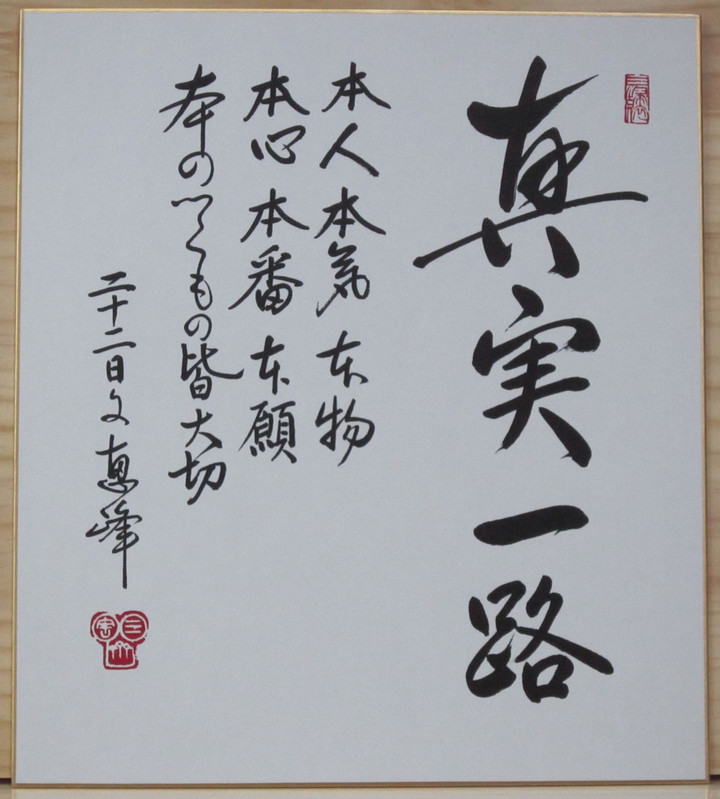 真実一路
本人 本気 本物
本心 本番 本願
本のつくもの皆大切
二十二日文 恵峰